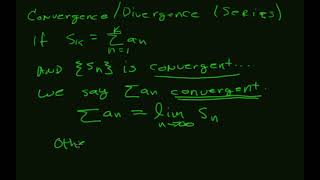 Convergence/Divergence (Series)
If S_k = \sum_{n=1}^{k} a_n
AND {S_n} is convergent....
we say Σa_n convergent.
Σa_n = lim_{n→∞} S_n
Oth